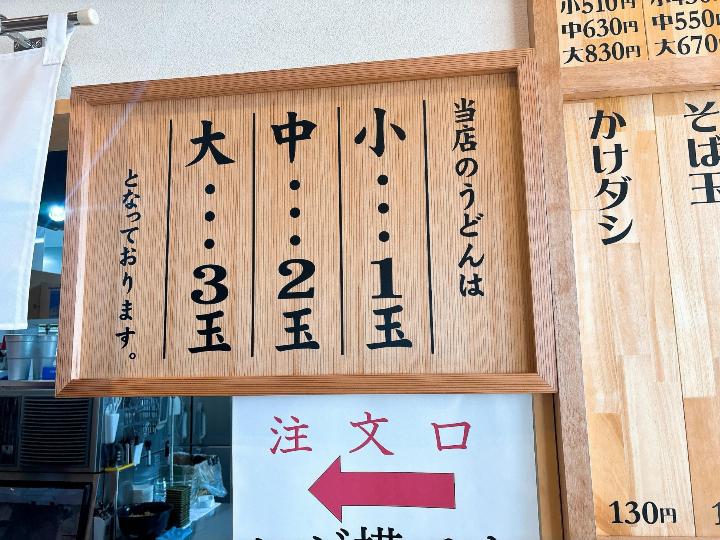 当店のうどんは
小・・・1玉
中・・・2玉
大・・・3玉
となっております。
注文口
小510円
中630円
大830円
中550円
大670円
そば玉
かけダシ
130円